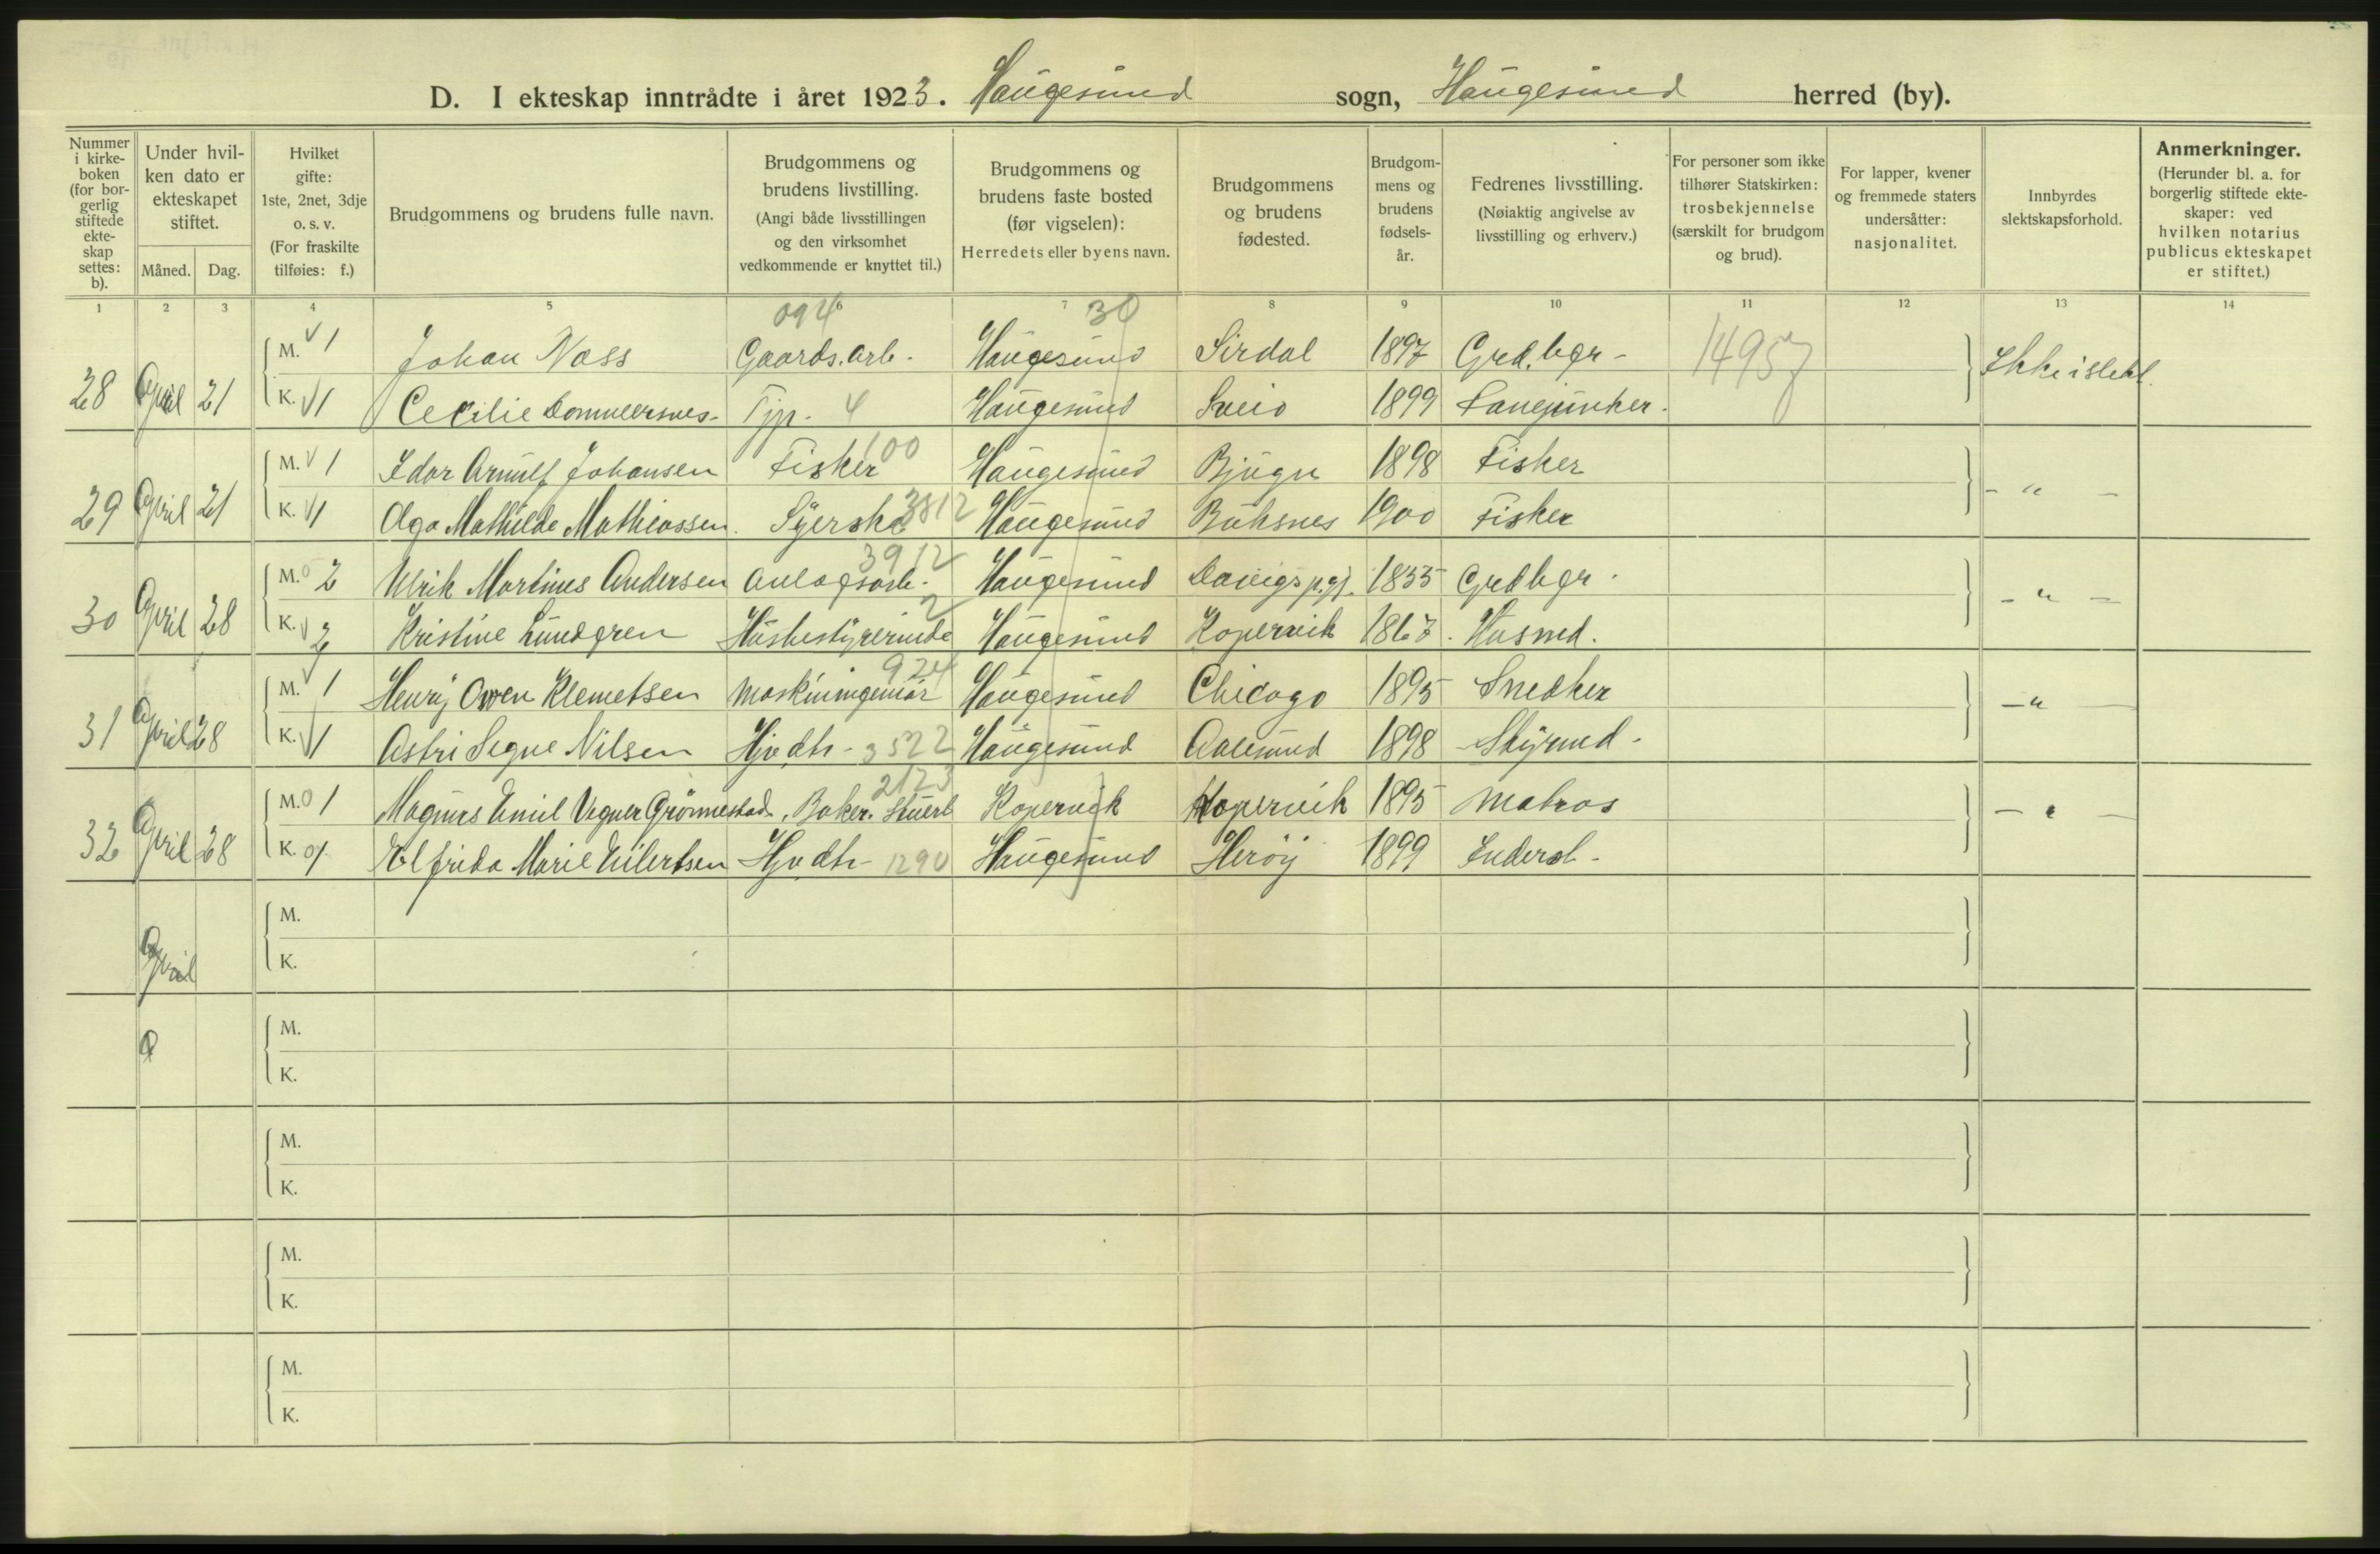 D. I ekteskap inntrådte i året 1923. Haugesund sogn, Haugesund herred (by).
Nummer i kirkeboken (for borgerlig stiftede ekteskap settes: b).
Under hvilken dato er ekteskapet stiftet.
Måned. Dag.
Hvilket gifte: 1ste, 2net, 3dje o. s. v. (For fraskilte tilføies: f.)
Brudgommens og brudens fulle navn.
Brudgommens og brudens livstilling. (Angi både livsstillingen og den virksomhet vedkommende er knyttet til.)
Brudgommens og brudens faste bosted (før vigselen): Herredets eller byens navn.
Brudgommens og brudens fødested.
Brudgommens og brudens fødsels-år.
Fedrenes livsstilling. (Nøiaktig angivelse av livsstilling og erhverv.)
For personer som ikke tilhører Statskirken: trosbekjennelse (særskilt for brudgom og brud).
For lapper, kvener og fremmede staters undersåtter: nasjonalitet.
Innbyrdes slektskapsforhold.
Anmerkninger. (Herunder bl. a. for borgerlig stiftede ekteskaper: ved hvilken notarius publicus ekteskapet er stiftet.)
1 2 3 4 5 6 7 8 9 10 11 12 13 14
094 30
28 April 21 M. 1 Johan Næss Gaards.arb. Haugesund Sirdal 1897 Grd.bgr - 14957 Ikke i slekt.
K. 1 Cecilie Tjp. 4 Haugesund Sveio 1899
29 April 21 M. 1 Idar Arnulf Johansen Fisker 100 Haugesund Bjugn 1898 Fisker - " -
K. 1 Olga Mathilde Mathiassen. Syerske 3812 Haugesund Buksnes 1900 Fisker
3912
30 April 28 M. 2 Ulrik Martinus Andersen Anlægsarb. Haugesund 1855 Grdbgr. - " -
K. 2 Kristine Lundgren Husbestyrerinde 2 Haugesund Kopervik 1867. Husmd.
924
31 April 28 M. 1 Henry Owen Klemetsen Maskiningeniør Haugesund Chicago 1895 Snedker - " -
K. 1 Astri Signe Nilsen Hjv dtr - 3522 Haugesund Aalesund 1898 Skyrmd.
2123
32 April 28 M. 0 1 Magnus Emil Vegner Grønnestad. Baker. Stuert Kopervik Kopervik 1895 Matros - " -
K. 0 1 Elfrida Marie Eilertsen Hjv dtr - 1290 Haugesund Herøy 1899
April M.
K.
M.
K.
M.
K.
M.
K.
M.
K.